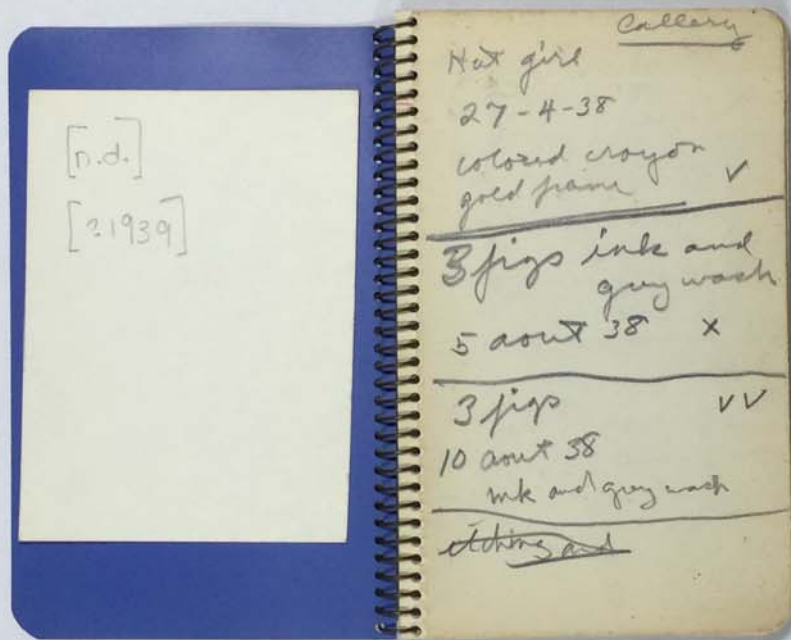 [n.d.]
[?1939]
Callery
Hat girl
27-4-38
colored crayon
gold frame ✓
3 figs ink and
grey wash
5 aout 38 x
3 figs ✓✓
10 aout 38
ink and grey wash
etching and